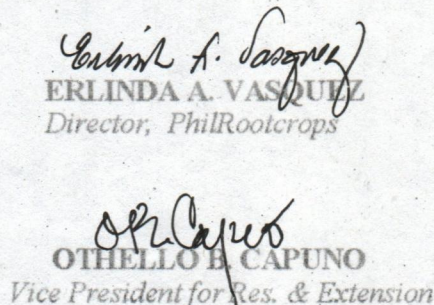 Erlinda A. Vasquez
ERLINDA A. VASQUEZ
Director, PhilRootcrops
O.B. Capuno
OTHELLO B. CAPUNO
Vice President for Res. & Extension